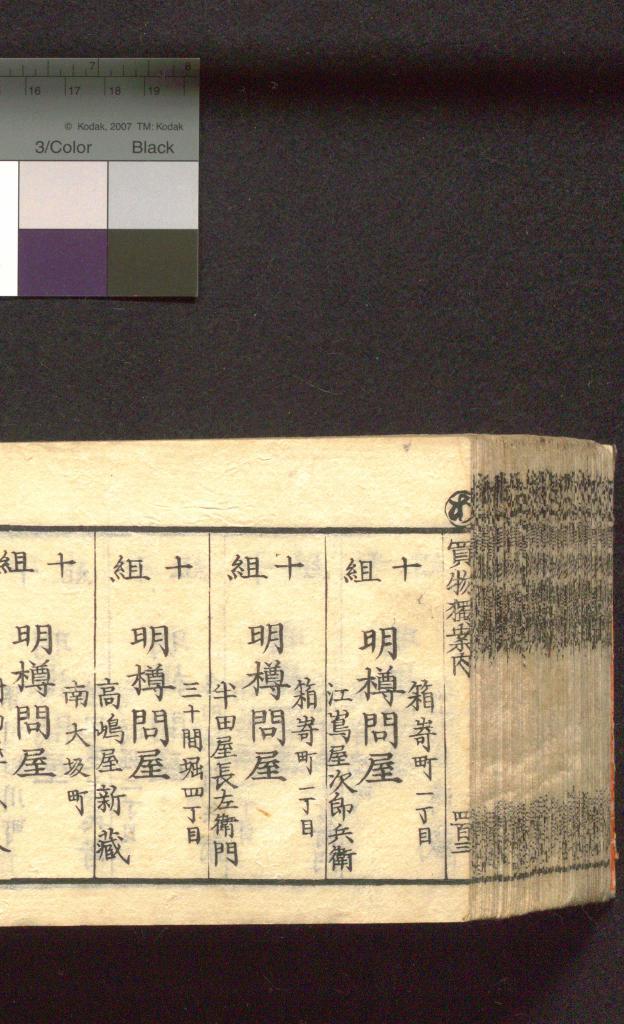 7 8
16 17 18 19
© Kodak, 2007 TM: Kodak
3/Color Black
買物獨案内
四百三
十組
箱嵜町一丁目
明樽問屋
江嶌屋次郎兵衛
十組
箱嵜町一丁目
明樽問屋
半田屋長左衛門
十組
三十間堀四丁目
明樽問屋
高嶋屋新藏
十組
南大坂町
明樽問屋